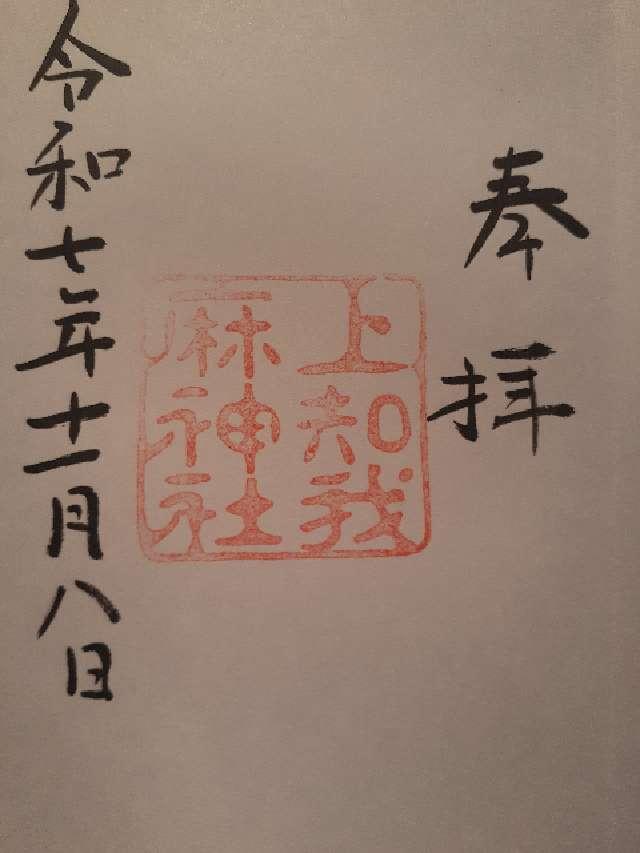 奉拝
上知我
麻神社
令和七年十一月八日